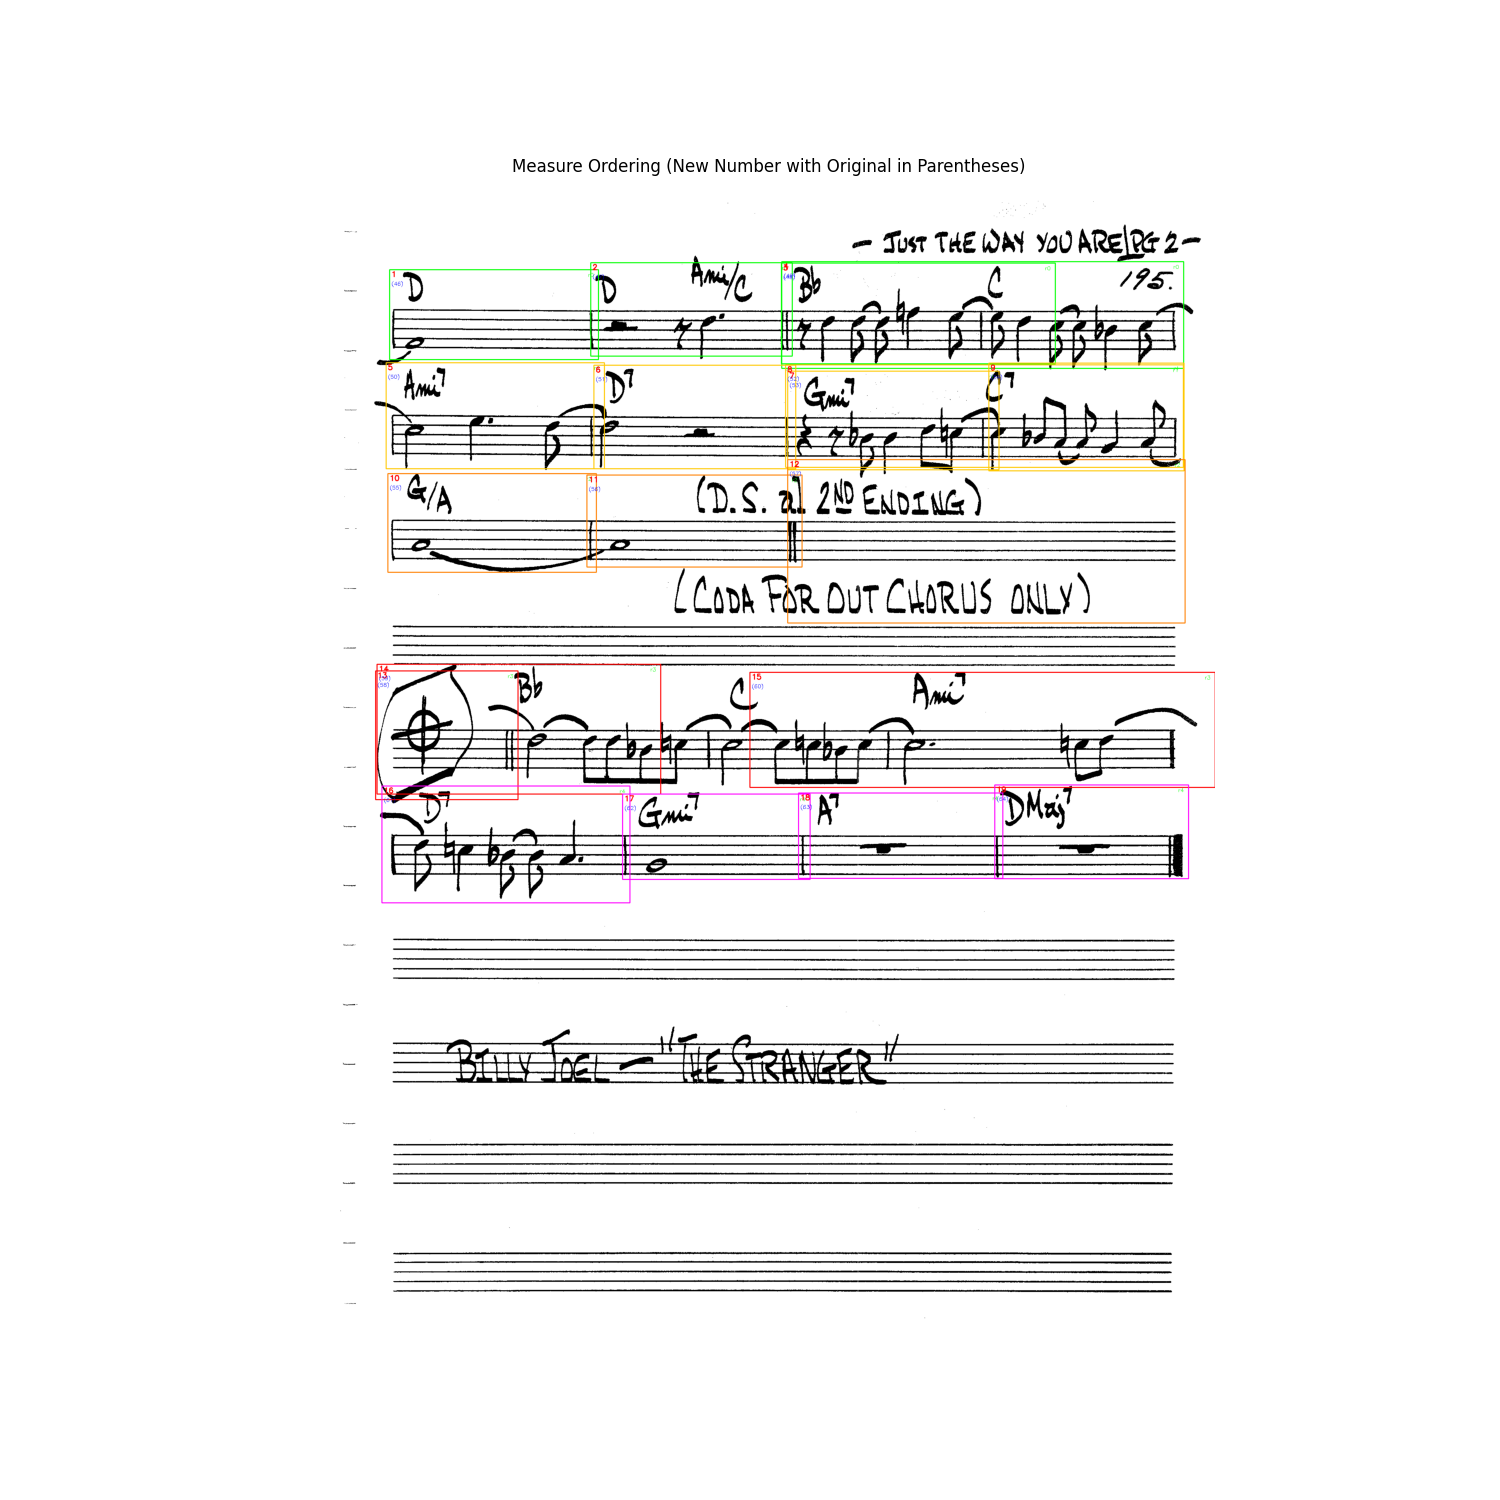 Measure Ordering (New Number with Original in Parentheses)
— JUST THE WAY YOU ARE/PG 2 —
195.
1 D 2 D Ami/C Bb C
5 Ami7 6 D7 Gmi7 9 C7
10 G/A 11 (D.S. al 2ND ENDING) 12
(CODA FOR OUT CHORUS ONLY)
14 13 Bb C 15 Ami7
16 D7 17 Gmi7 18 A7 19 DMaj7
BILLY JOEL — "THE STRANGER"